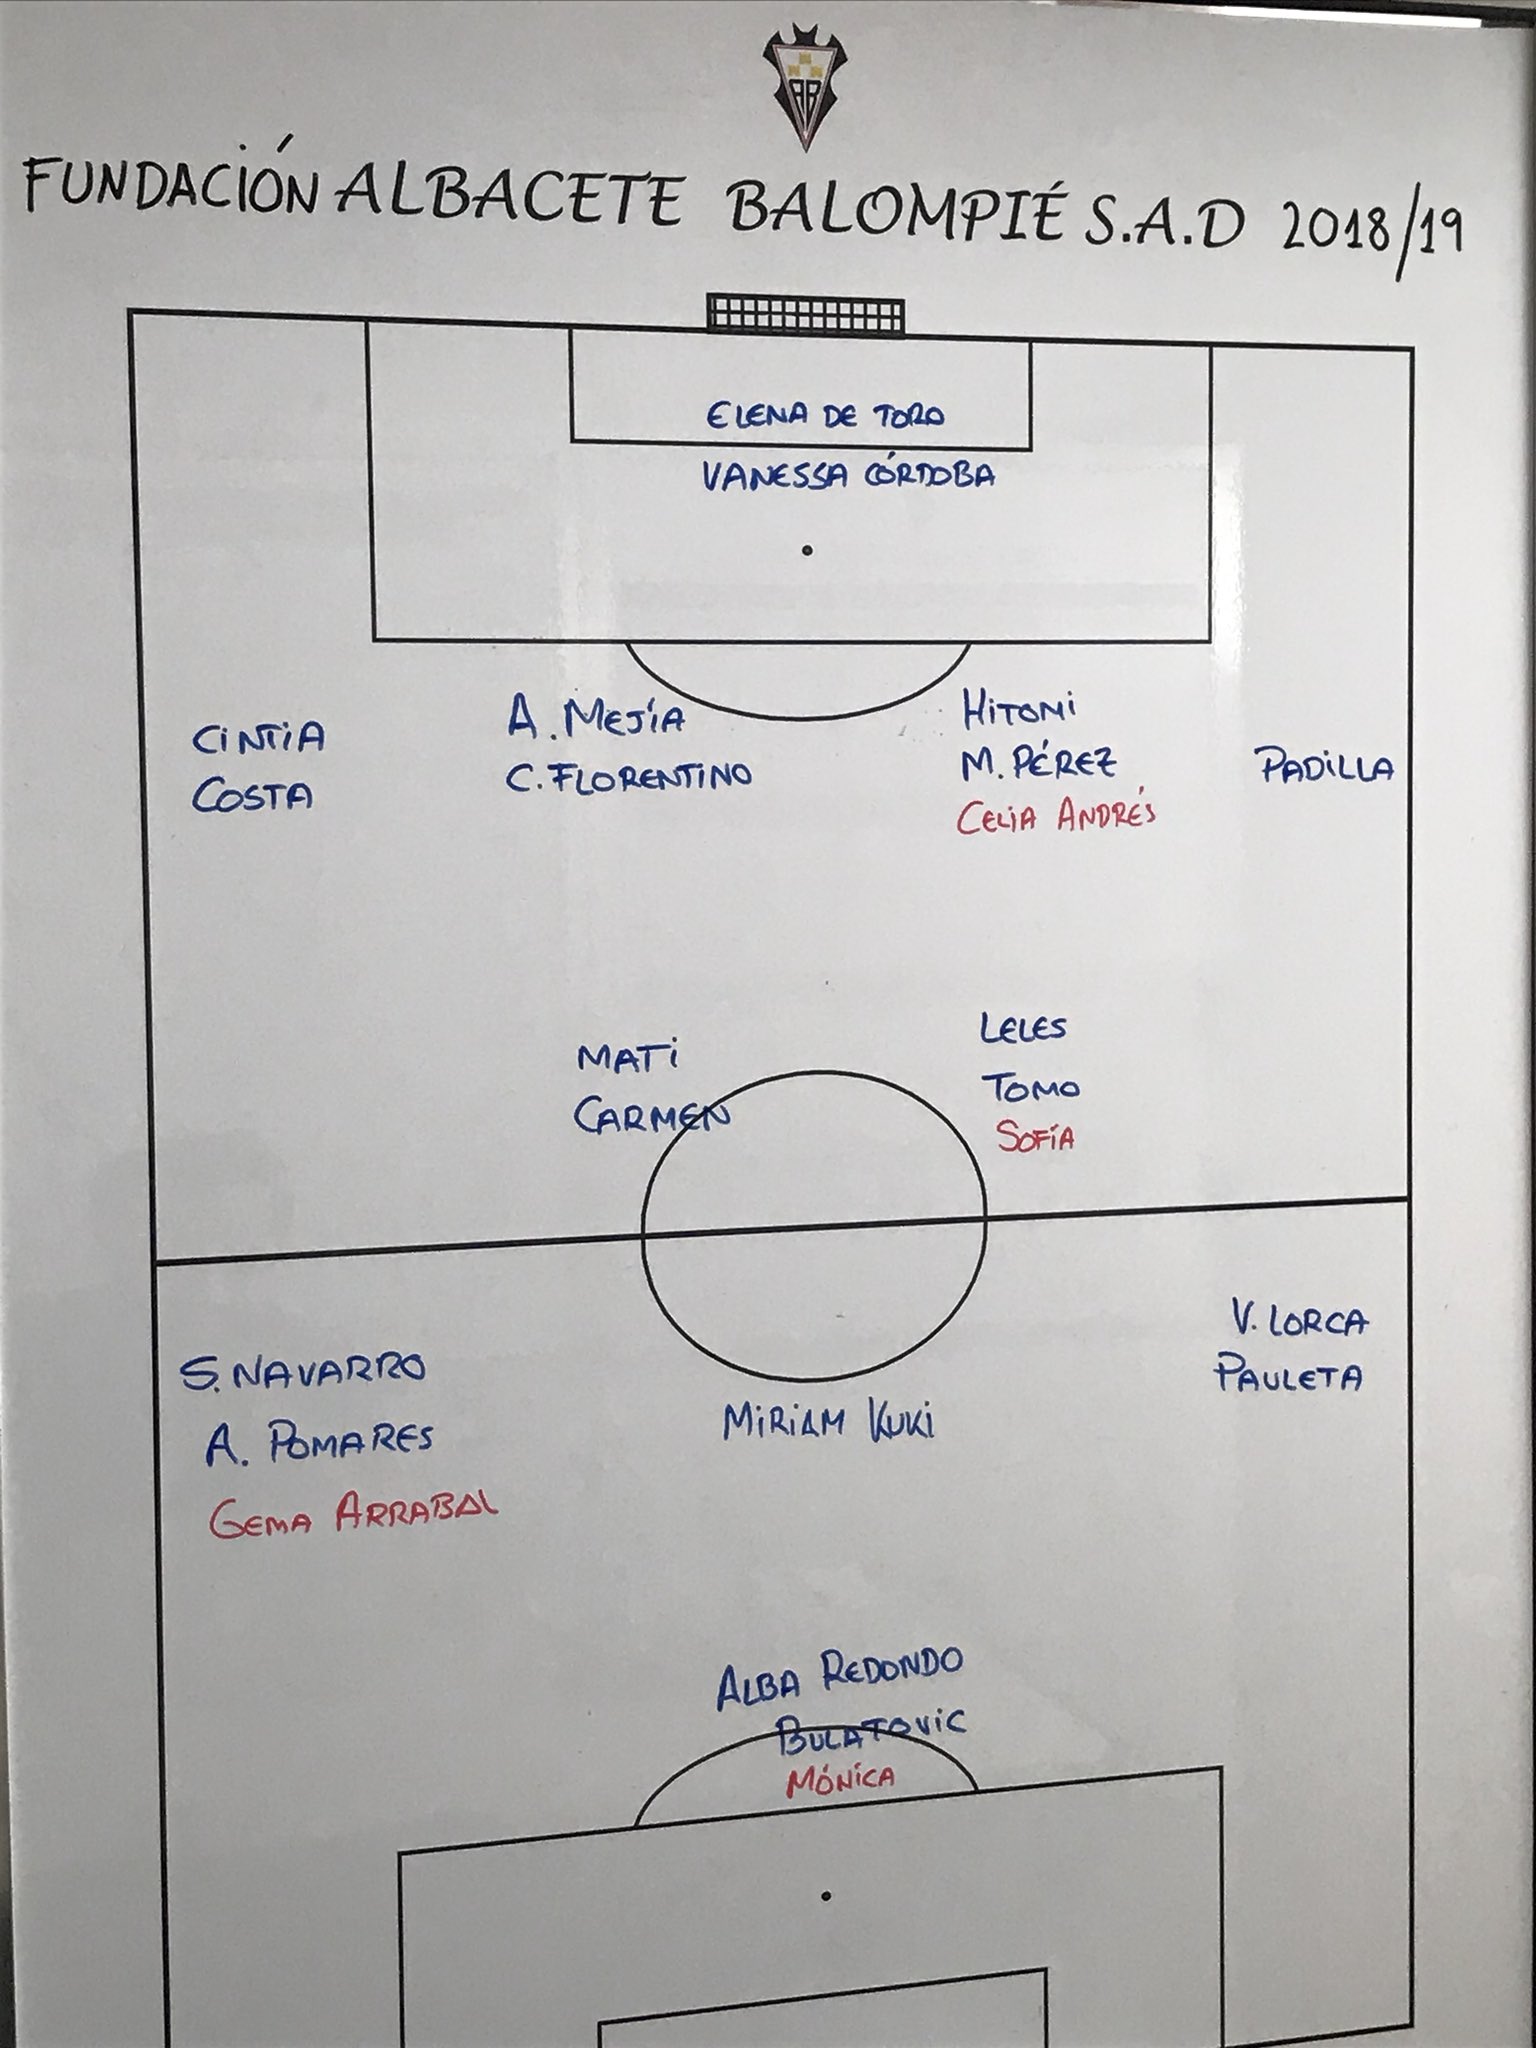 FUNDACIÓN ALBACETE BALOMPIÉ S.A.D 2018/19
ELENA DE TORO
VANESSA CÓRDOBA
CINTIA
COSTA
A. MEJÍA
C. FLORENTINO
HITOMI
M. PÉREZ
CELIA ANDRÉS
PADILLA
MATI
CARMEN
LELES
TOMO
SOFÍA
S. NAVARRO
A. POMARES
GEMA ARRABAL
MIRIAM KUKI
V. LORCA
PAULETA
ALBA REDONDO
BULATOVIC
MÓNICA